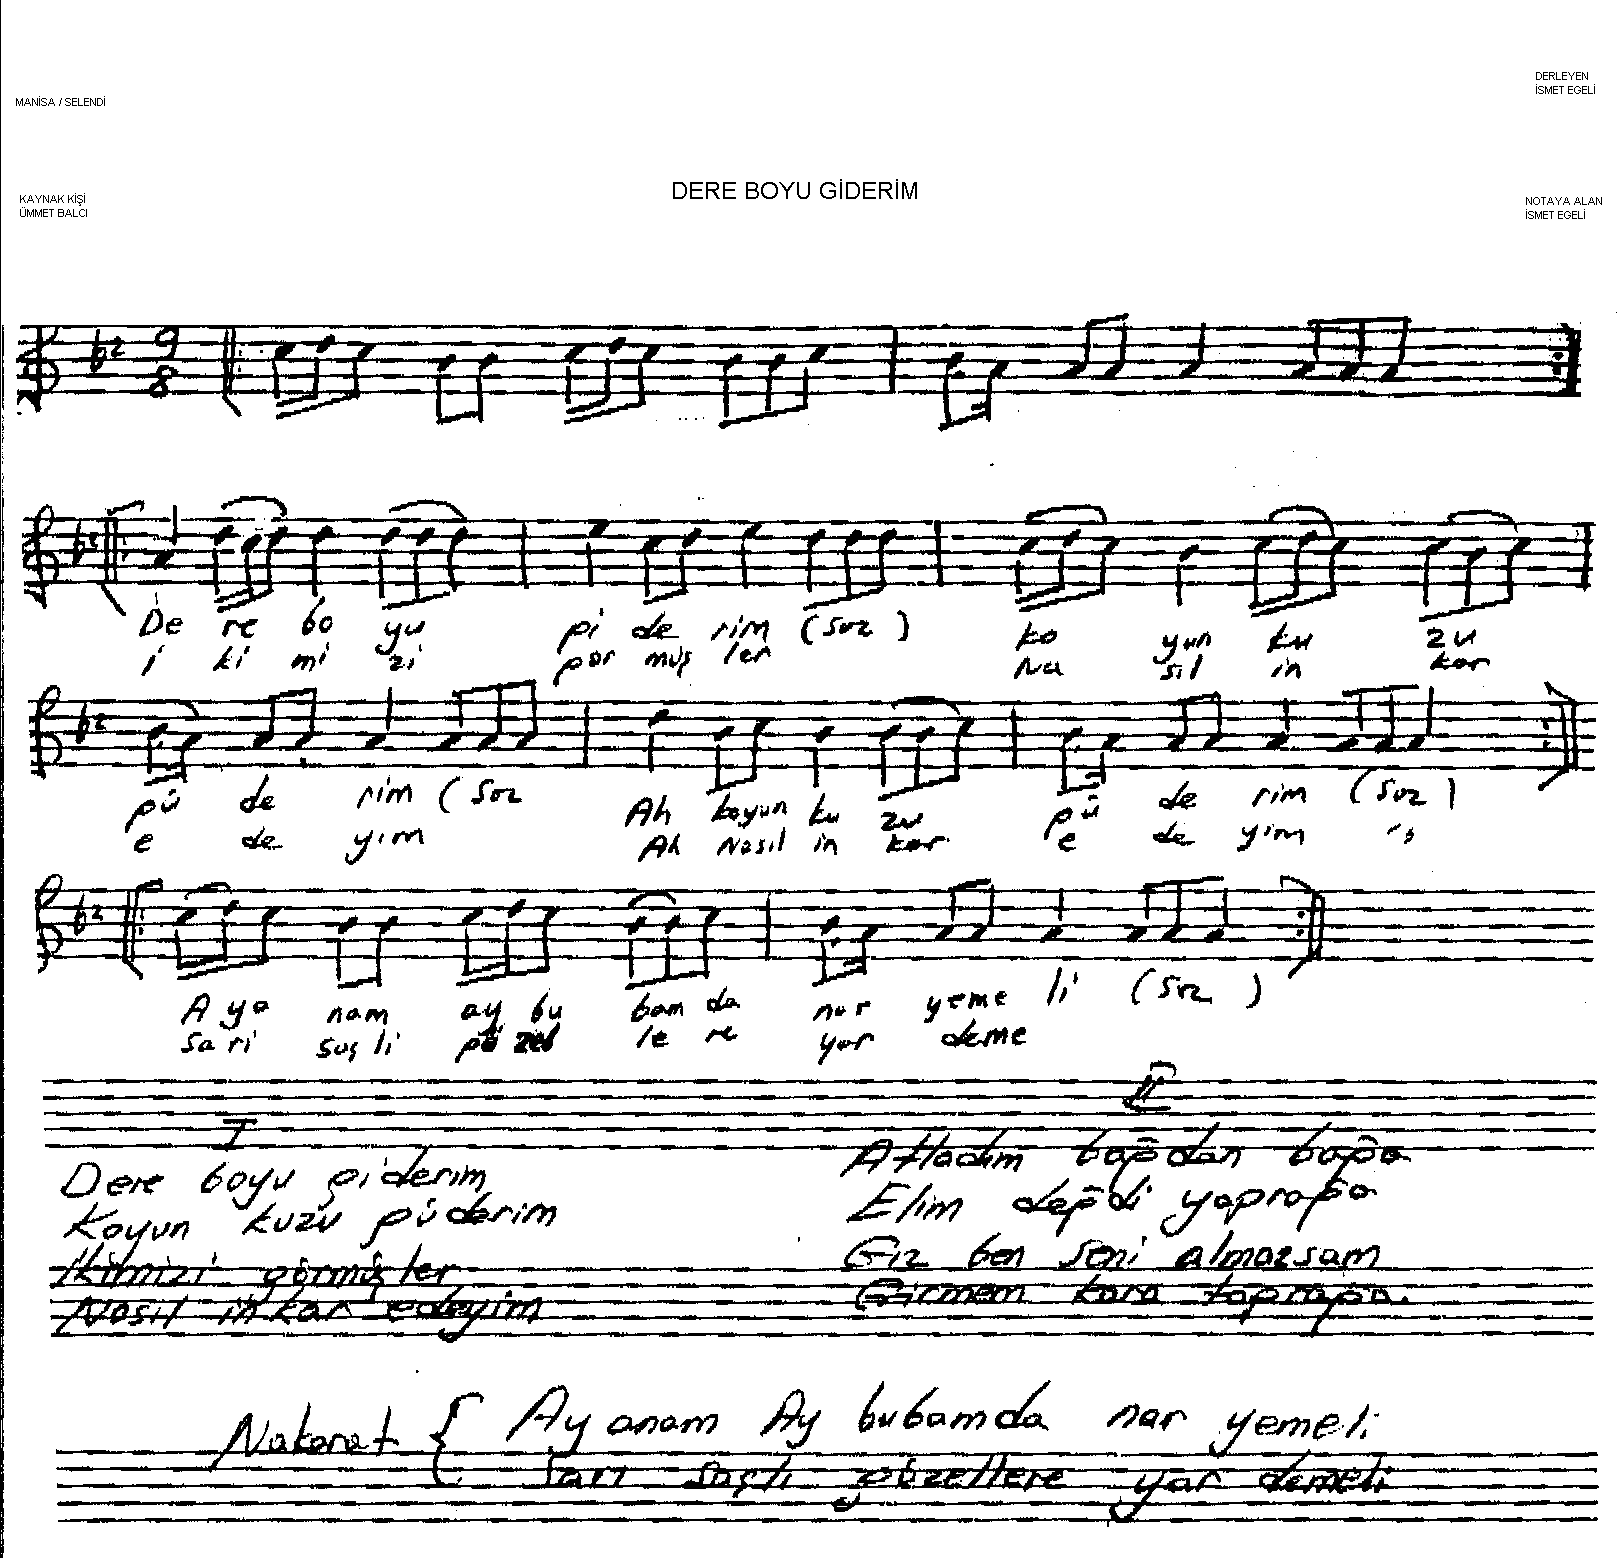 DERLEYEN
İSMET EGELİ
MANİSA / SELENDİ
DERE BOYU GİDERİM
KAYNAK KİŞİ
ÜMMET BALCI
NOTAYA ALAN
İSMET EGELİ
9
8
De re bo yu gi de rim (Saz) ko yun ku zu
i ki mi zi gör müş ler Na sıl in kar
gü de rim (Saz Ah koyun ku zu gü de rim (Saz)
e de yim Ah Nasıl in kar e de yim "
A ya nam ay bu bam da nar yeme li (Saz)
Sa rı saç lı gü zel le re yar deme
I
Dere boyu giderim
Koyun kuzu güderim
İkimizi görmüşler
Nasıl inkar edeyim
II
Atladım bağdan bağa
Elim değdi yaprağa
Gız ben seni almazsam
Girmem kara toprağa.
Nakarat { Ay anam Ay bubamda nar yemeli
Sarı saçlı güzellere yar demeli